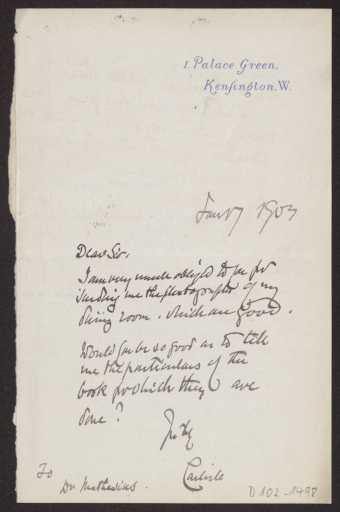 1. Palace Green,
Kensington. W.
Jan 17 1903
Dear Sir,
I am very much obliged to you for
sending me the photographs of my
dining room. which are good.
Would you be so good as to tell
me the particulars of the
book for which they are
done?
Carlisle
To
Dr Muthesius.
D 102-1498